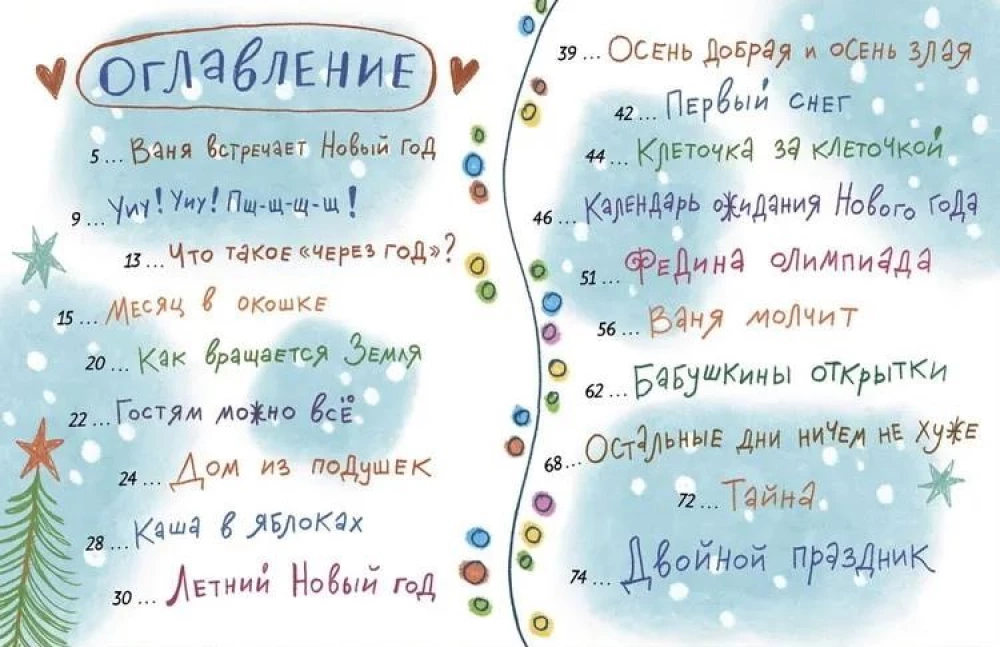 Оглавление
5... Ваня встречает Новый год
9... Уиу! Уиу! Пщ-щ-щ-щ!
13... Что такое «через год»?
15... Месяц в окошке
20... Как вращается Земля
22... Гостям можно всё
24... Дом из подушек
28... Каша в яблоках
30... Летний Новый год
39... Осень добрая и осень злая
42... Первый снег
44... Клеточка за клеточкой
46... Календарь ожидания Нового года
51... Федина олимпиада
56... Ваня молчит
62... Бабушкины открытки
68... Остальные дни ничем не хуже
72... Тайна
74... Двойной праздник